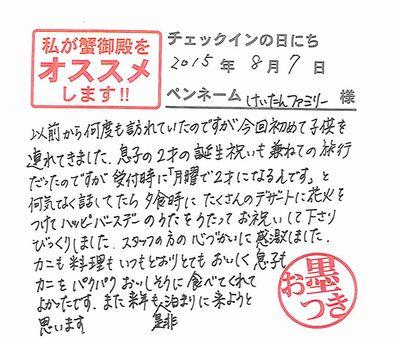 私が蟹御殿を
オススメ
します!!
チェックインの日にち
2015年 8月 7日
ペンネーム けいたんファミリー 様
以前から何度も訪れていたのですが今回初めて子供を
連れてきました。息子の2才の誕生祝いも兼ねての旅行
だったのですが受付時に「月曜で2才になるんです」と
何気なく話してたら夕食時にたくさんのデザートに花火を
つけてハッピバースデーのうたをうたってお祝いして下さり
びっくりしました。スタッフの方の心づかいに感激しました。
カニも料理もいつもどおりとてもおいしく息子も
カニをパクパクおいしそうに食べてくれて
よかったです。また来年も泊まりに来ようと
思います
是非
お墨
つき